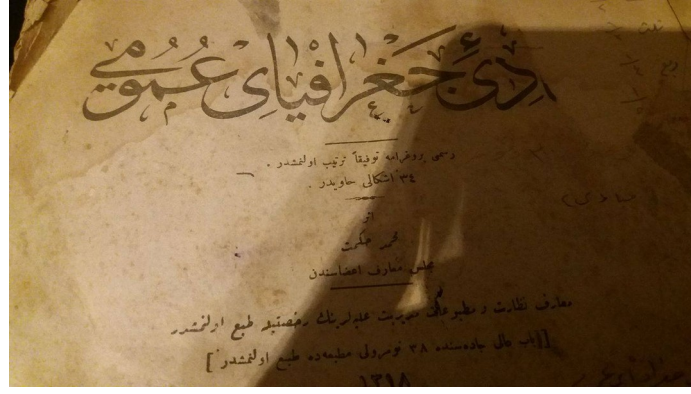 مبادئ جغرافیای عمومی
رسمی پروغرامه توفیقاً ترتیب اولنمشدر .
٣٤ اشكالی حاویدر .
اثر
محمد حكمت
مجلس معارف اعضاسندن
معارف نظارت و مطبوعات مدیریت علیه لرینك رخصتیله طبع اولنمشدر
[ باب عالی جاده سنده ٣٨ نومرولی مطبعه ده طبع اولنمشدر ]
١٣١٨